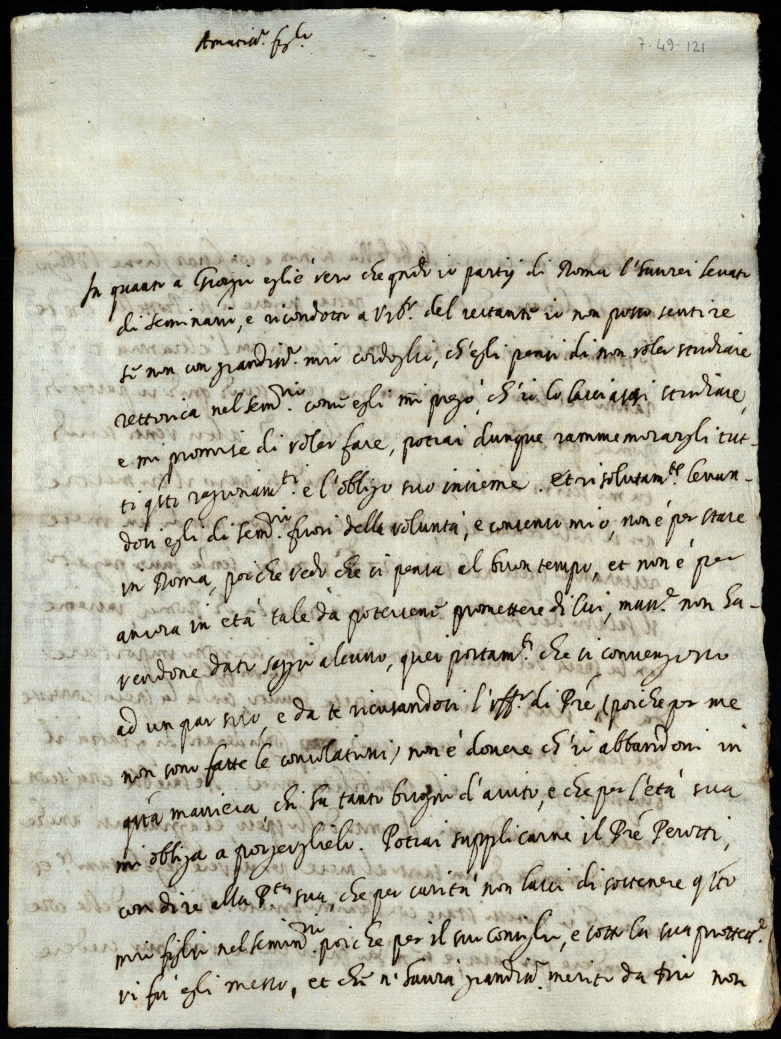 Amatiss.º figlio
7-49-121
In quanto a Giorgio egli è vero che qñdo io partij di Roma l'haurei levato
di seminario, e ricondotto a Urb.º del restante io non posso sentire
se non con grandiss.º mio cordoglio, ch'egli pensi di non voler studiare
rettorica nel sem.rio come egli mi pregò, ch'io lo lasciassi studiare,
e mi promise di voler fare, potrai dunque rammemorargli tut-
ti q̃sti ragionam.ti e l'obligo suo insieme. Et risolutam.te levan-
dosi egli di sem.rio fuori della volontà, e consenso mio, non è per stare
in Roma, poiche vedo che si pensa al buon tempo, et non è per
ancora in età tale da potersene promettere di lui, mass.e non ha-
vendone dato saggio alcuno, quei portam.ti che si convengono
ad un par suo, e da te ricusandosi l'uff.º di Prẽ, (poiche per me
non sono fatte le consolationi) non è dovere ch'io abbandoni in
q̃sta maniera chi ha tanto bisogno d'aiuto, e che per l'età sua
mi obliga a porgerglielo. Potrai supplicarne il Prẽ Perotti,
con dire alla P.tà sua, che per carità non lasci di sostenere q̃sto
mio figlio nel semin.rio poiche per il suo consiglio, e sotto la sua protett.e
vi fù egli messo, et che n'haurà grandiss.º merito da Dio non